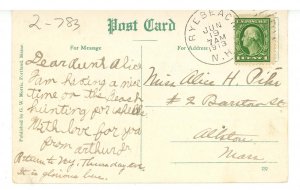 2-783
Post Card
For Message
For Address
Published by G. W. Morris, Portland, Maine
RYE BEACH
JUN
15
7 AM
1913
N.Y.
Dear Aunt Alice
I am having a nice
time on the beach
hunting for shells
With love for you
from Arthur Jr
Return to N.Y. Thursday eve
It is glorious here.
Miss Alice H. Pike
# 2 Boarstow St.
Allston
Mass